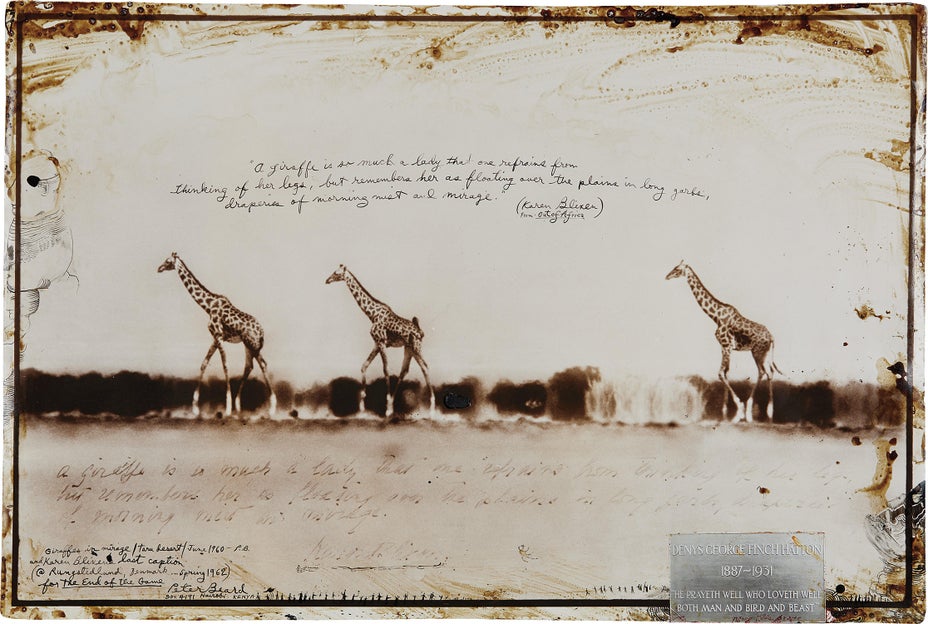 "A giraffe is so much a lady that one refrains from
thinking of her legs, but remembers her as floating over the plains in long garbs,
draperies of morning mist and mirage."
(Karen Blixen)
from Out of Africa
A giraffe is so much a lady that one refrains from thinking of her legs,
but remembers her as floating over the plains in long garbs, draperies
of morning mist and mirage.
Giraffes in mirage / Taru desert / June 1960 - P.B.
and Karen Blixen's last caption
(@ Rungstedlund, Denmark ... Spring 1962)
for The End of the Game
Peter Beard
Box 4191 Nairobi KENYA
DENYS GEORGE FINCH HATTON
1887~1931
HE PRAYETH WELL WHO LOVETH WELL
BOTH MAN AND BIRD AND BEAST